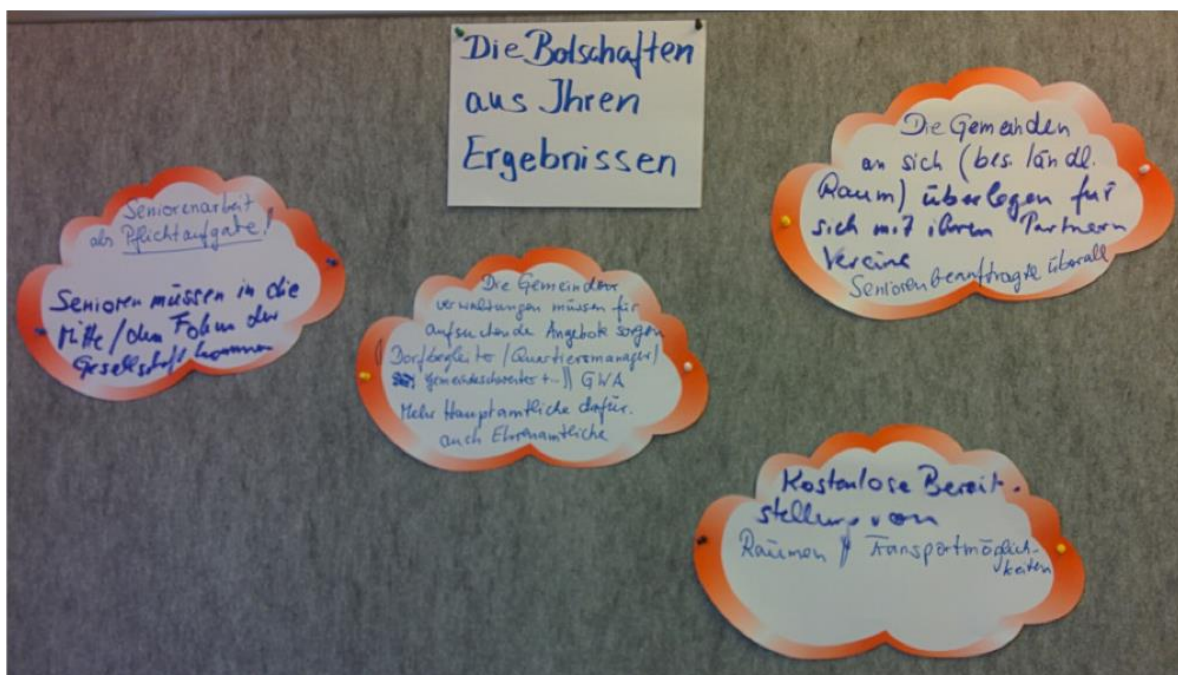 Die Botschaften
aus Ihren
Ergebnissen
Seniorenarbeit
als Pflichtaufgabe!
Senioren müssen in die
Mitte / den Fokus der
Gesellschaft kommen
Die Gemeinde
verwaltungen müssen für
aufsuchende Angebote sorgen
Dorfbegleiter / Quartiersmanager /
Gemeindeschwester +... GWA
Mehr Hauptamtliche dafür.
auch Ehrenamtliche
Die Gemeinden
an sich (bes. ländl.
Raum) überlegen für
sich mit ihren Partnern
Vereine
Seniorenbeauftragte überall
Kostenlose Bereit-
stellung von
Räumen Transportmöglich-
keiten